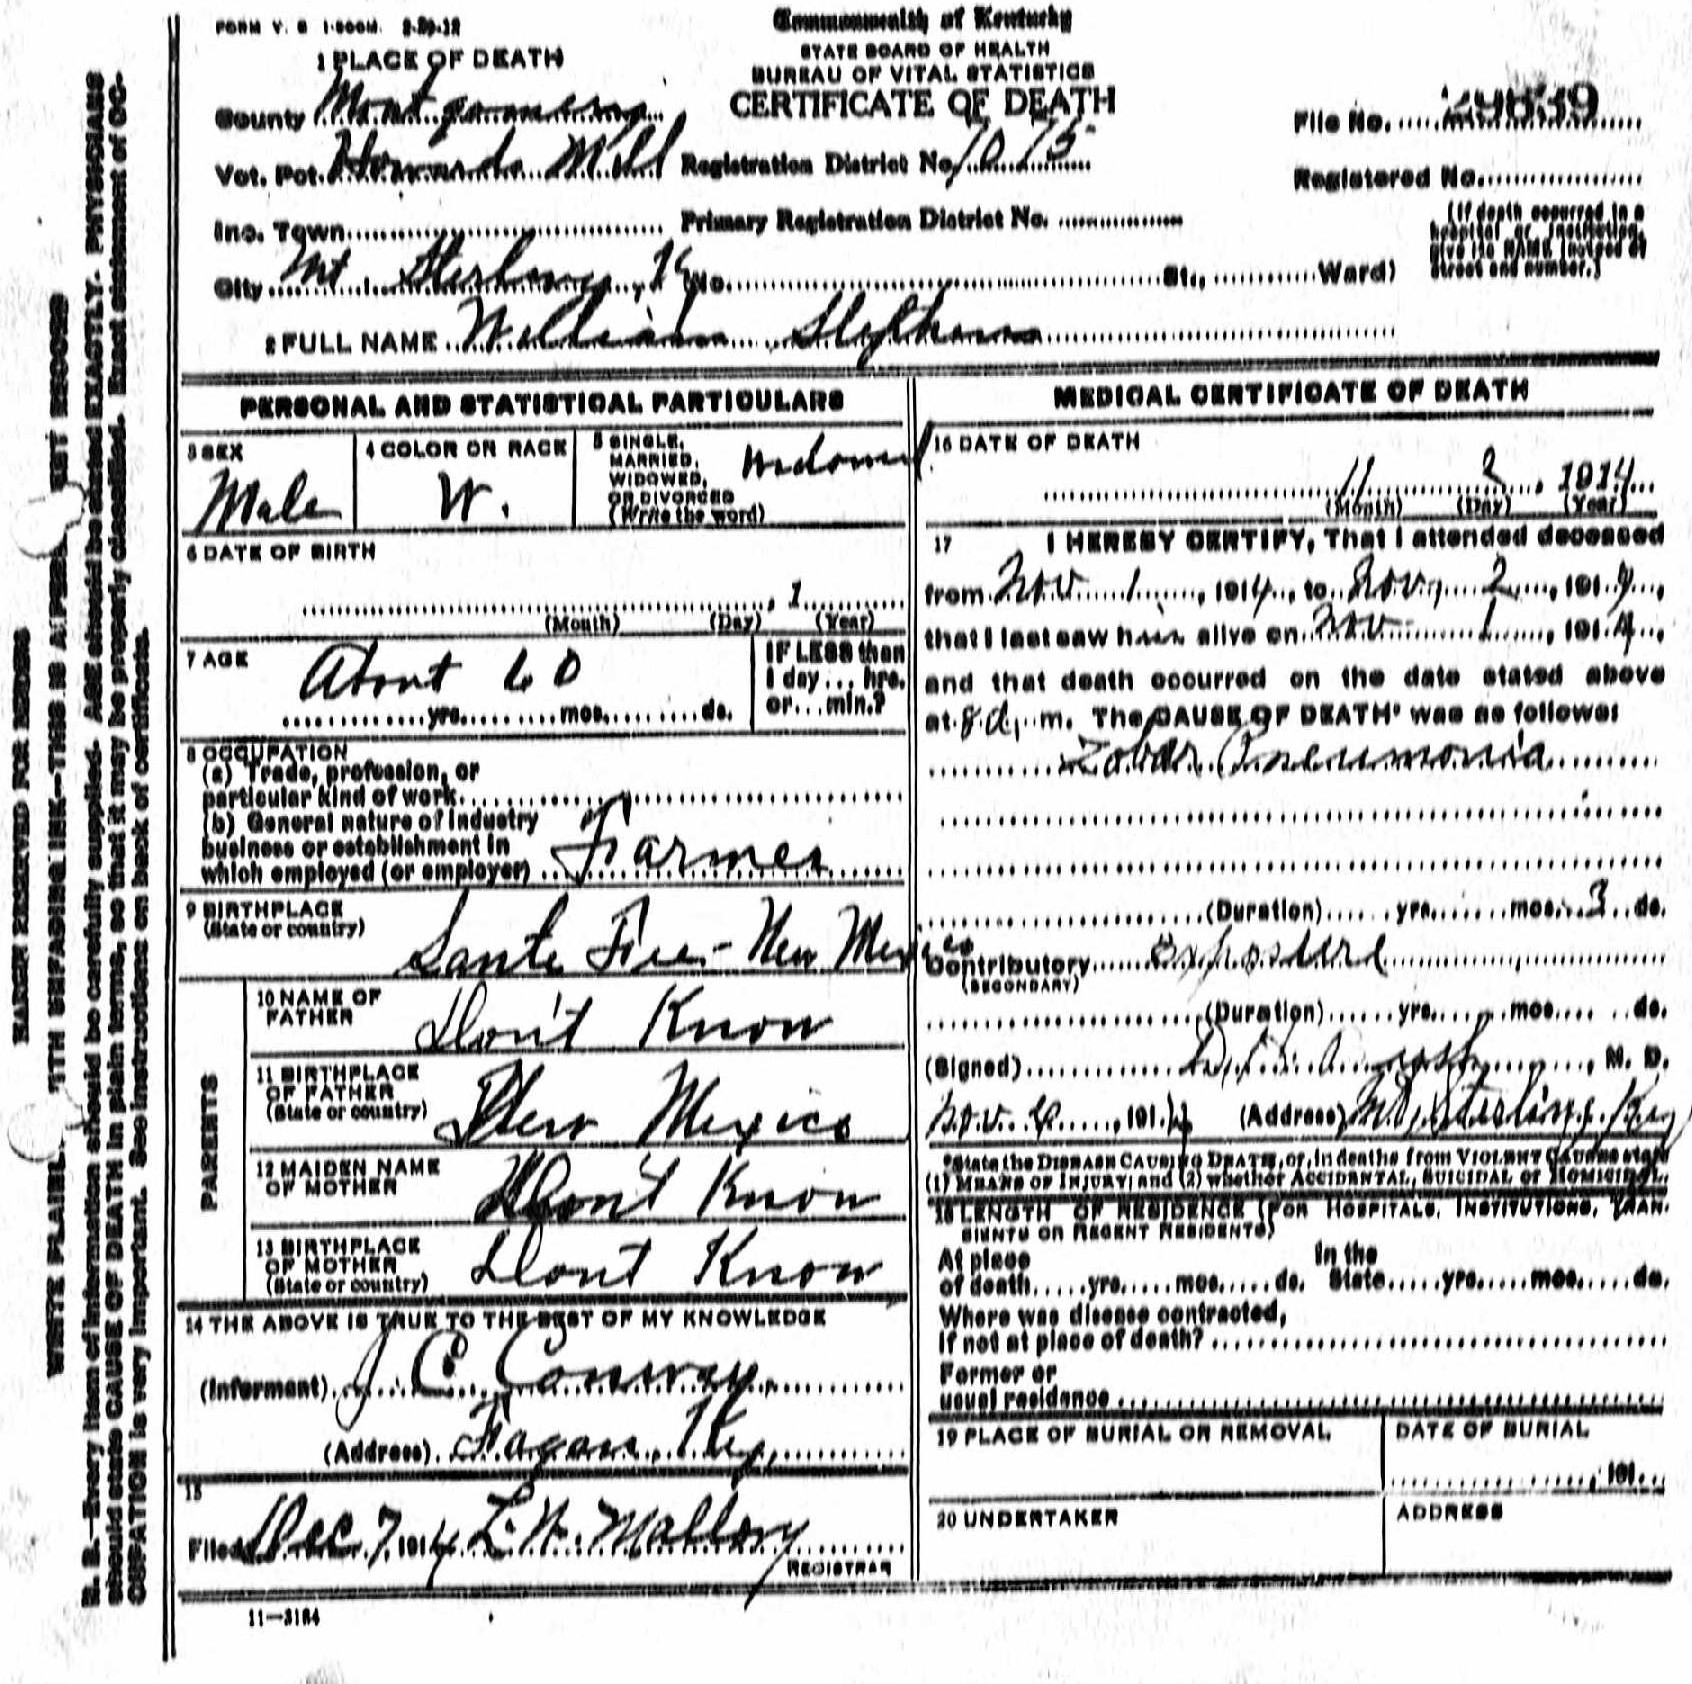 FORM V. S 1-500M. 2-29-12
Commonwealth of Kentucky
STATE BOARD OF HEALTH
BUREAU OF VITAL STATISTICS
CERTIFICATE OF DEATH
1 PLACE OF DEATH
County Montgomery
File No. 29839
Vot. Pct. Howards Mill Registration District No. 1075
Registered No.
Inc. Town Primary Registration District No.
City Mt. Sterling, Ky (No. St., Ward)
(If death occurred in a
hospital or institution,
give its NAME instead of
street and number.)
2 FULL NAME William Stephens
PERSONAL AND STATISTICAL PARTICULARS
3 SEX
Male
4 COLOR OR RACE
W.
5 SINGLE,
MARRIED,
WIDOWED,
OR DIVORCED
(Write the word)
Widowed
6 DATE OF BIRTH
, 1
(Month) (Day) (Year)
7 AGE
About 60
yrs. mos. ds.
IF LESS than
1 day ... hrs.
or ... min.?
8 OCCUPATION
(a) Trade, profession, or
particular kind of work
(b) General nature of Industry
business or establishment in
which employed (or employer) Farmer
9 BIRTHPLACE
(State or country)
Sante Fee - New Mexico
PARENTS
10 NAME OF
FATHER
Don't Know
11 BIRTHPLACE
OF FATHER
(State or country)
New Mexico
12 MAIDEN NAME
OF MOTHER
Don't Know
13 BIRTHPLACE
OF MOTHER
(State or country)
Dont Know
14 THE ABOVE IS TRUE TO THE BEST OF MY KNOWLEDGE
(Informant) J C Conway
(Address) Fagan, Ky,
15
Filed Dec 7 1914 L. W. Mallory
REGISTRAR
11-3184
MEDICAL CERTIFICATE OF DEATH
16 DATE OF DEATH
11 2, 1914
(Month) (Day) (Year)
17 I HEREBY CERTIFY, That I attended deceased
from Nov. 1, 1914, to Nov, 2, 1914,
that I last saw him alive on Nov 1, 1914,
and that death occurred on the date stated above
at 8 a, m. The CAUSE OF DEATH* was as follows:
Lobar Pneumonia
(Duration) yrs. mos. 3 ds.
Contributory Exposure
(SECONDARY)
(Duration) yrs. mos. ds.
(Signed) , M. D.
Nov. , 191 (Address) Mt. Sterling, Ky
*State the DISEASE CAUSING DEATH, or, in deaths from VIOLENT CAUSES state
(1) MEANS OF INJURY; and (2) whether ACCIDENTAL, SUICIDAL or HOMICIDAL.
18 LENGTH OF RESIDENCE (FOR HOSPITALS, INSTITUTIONS, TRAN-
SIENTS OR RECENT RESIDENTS)
At place In the
of death yrs. mos. ds. State yrs. mos. ds.
Where was disease contracted,
if not at place of death?
Former or
usual residence
19 PLACE OF BURIAL OR REMOVAL
DATE OF BURIAL
, 191
20 UNDERTAKER
ADDRESS
MARGIN RESERVED FOR BINDING
WRITE PLAINLY, WITH UNFADING INK—THIS IS A PERMANENT RECORD
N. B.—Every item of information should be carefully supplied. AGE should be stated EXACTLY. PHYSICIANS
should state CAUSE OF DEATH in plain terms, so that it may be properly classified. Exact statement of OC-
CUPATION is very important. See instructions on back of certificate.